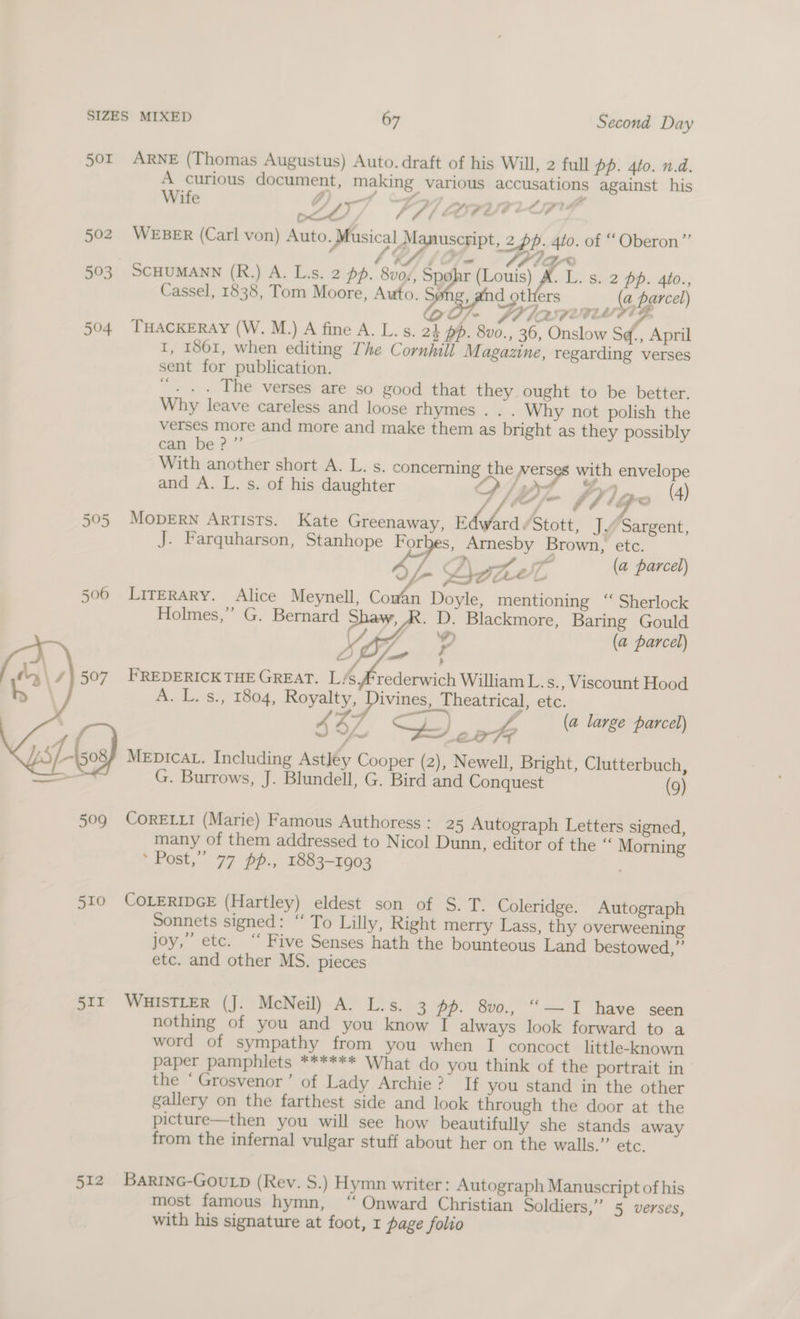 SIZES MIXED 67 Second Day
501 ARNE (Thomas Augustus) Auto. draft of his Will, 2 full pp. 4to. n.d.
A curious document, making various accusations against his
Wife
502 WEBER (Carl von) Auto. Musical Manuscript, 2 pp. 4to. of “Oberon”
503 SCHUMANN (R.) A. L.s. 2 pp. 8vo., Spohr (Louis) A. L. s. 2 pp. 4to.,
Cassel, 1838, Tom Moore, Auto. Song, and others (a parcel)
504 THACKERAY (W. M.) A fine A. L. s. 2½ pp. 8vo., 36, Onslow Sq., April
1, 1861, when editing The Cornhill Magazine, regarding verses
sent for publication.
“. . . The verses are so good that they ought to be better.
Why leave careless and loose rhymes . . . Why not polish the
verses more and more and make them as bright as they possibly
can be ? ”
With another short A. L. s. concerning the verses with envelope
and A. L. s. of his daughter (4)
505 MODERN ARTISTS. Kate Greenaway, Edward Stott, J. Sargent,
J. Farquharson, Stanhope Forbes, Arnesby Brown, etc.
(a parcel)
506 LITERARY. Alice Meynell, Conan Doyle, mentioning “ Sherlock
Holmes,” G. Bernard Shaw, R. D. Blackmore, Baring Gould
(a parcel)
507 FREDERICK THE GREAT. L. s., Frederwich William L. s., Viscount Hood
A. L. s., 1804, Royalty, Divines, Theatrical, etc.
(a large parcel)
508 MEDICAL. Including Astley Cooper (2), Newell, Bright, Clutterbuch,
G. Burrows, J. Blundell, G. Bird and Conquest (9)
509 CORELLI (Marie) Famous Authoress : 25 Autograph Letters signed,
many of them addressed to Nicol Dunn, editor of the “ Morning
Post,” 77 pp., 1883-1903
510 COLERIDGE (Hartley) eldest son of S. T. Coleridge. Autograph
Sonnets signed: “ To Lilly, Right merry Lass, thy overweening
joy,” etc. “ Five Senses hath the bounteous Land bestowed,”
etc. and other MS. pieces
511 WHISTLER (J. McNeil) A. L. s. 3 pp. 8vo., “ — I have seen
nothing of you and you know I always look forward to a
word of sympathy from you when I concoct little-known
paper pamphlets ****** What do you think of the portrait in
the ‘ Grosvenor ’ of Lady Archie ? If you stand in the other
gallery on the farthest side and look through the door at the
picture—then you will see how beautifully she stands away
from the infernal vulgar stuff about her on the walls.” etc.
512 BARING-GOULD (Rev. S.) Hymn writer: Autograph Manuscript of his
most famous hymn, “ Onward Christian Soldiers,” 5 verses,
with his signature at foot, 1 page folio